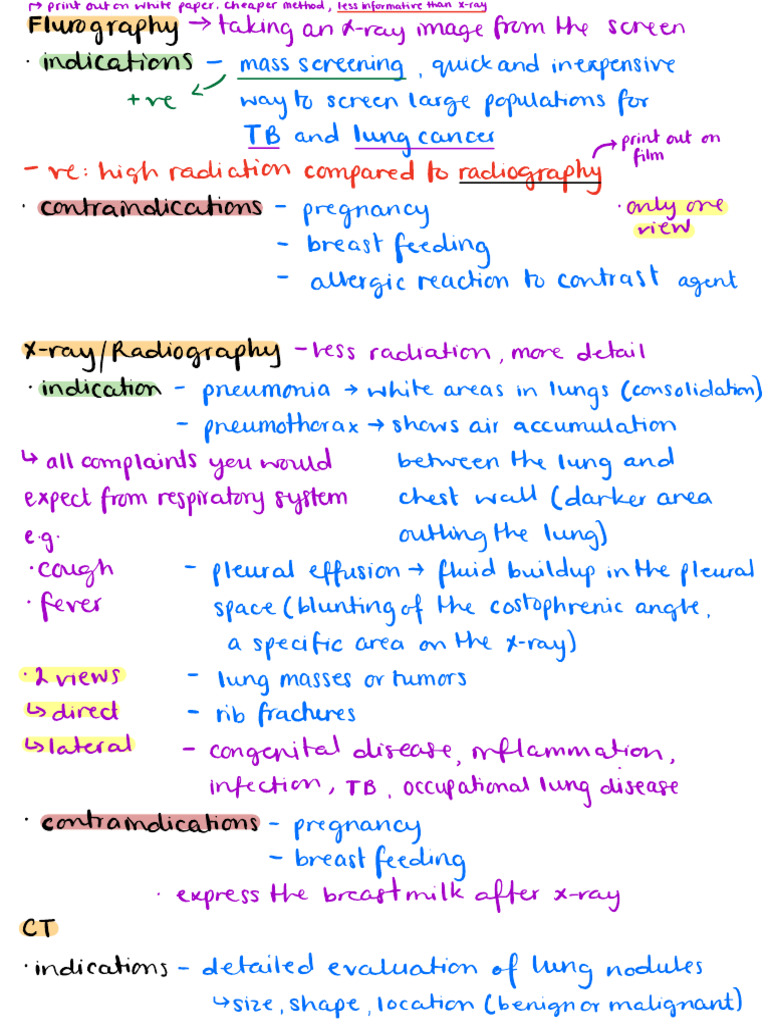 ↱ print out on white paper. cheaper method, less informative than x-ray
Flurography → taking an x-ray image from the screen
· indications – mass screening, quick and inexpensive
+ve way to screen large populations for
TB and lung cancer
→ print out on film
– ve: high radiation compared to radiography
· contraindications – pregnancy
· only one view
– breast feeding
– allergic reaction to contrast agent
X-ray/Radiography – less radiation, more detail
· indication – pneumonia → white areas in lungs (consolidation)
– pneumothorax → shows air accumulation
between the lung and
chest wall (darker area
outling the lung)
↳ all complaints you would
expect from respiratory system
e.g.
· cough
· fever
– pleural effusion → fluid buildup in the pleural
space (blunting of the costophrenic angle,
a specific area on the x-ray)
· 2 views
↳ direct
↳ lateral
– lung masses or tumors
– rib fractures
– congenital disease, inflammation,
infection, TB, occupational lung disease
· contraindications – pregnancy
– breast feeding
· express the breastmilk after x-ray
CT
· indications – detailed evaluation of lung nodules
↳ size, shape, location (benign or malignant)